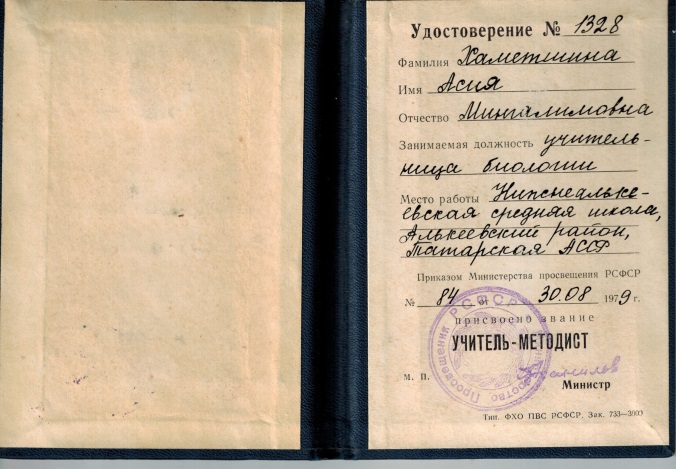 Удостоверение № 1328
Фамилия Хаметшина
Имя Асия
Отчество Мингалимовна
Занимаемая должность учитель-
ница биологии
Место работы Нижнеальке-
евская средняя школа,
Алькеевский район,
Татарская АССР
Приказом Министерства просвещения РСФСР
№ 84 от 30.08 1979 г.
присвоено звание
УЧИТЕЛЬ-МЕТОДИСТ
М. П.
Министр
Просвещения РСФСР
Тип. ФХО ПВС РСФСР. Зак. 733—3000